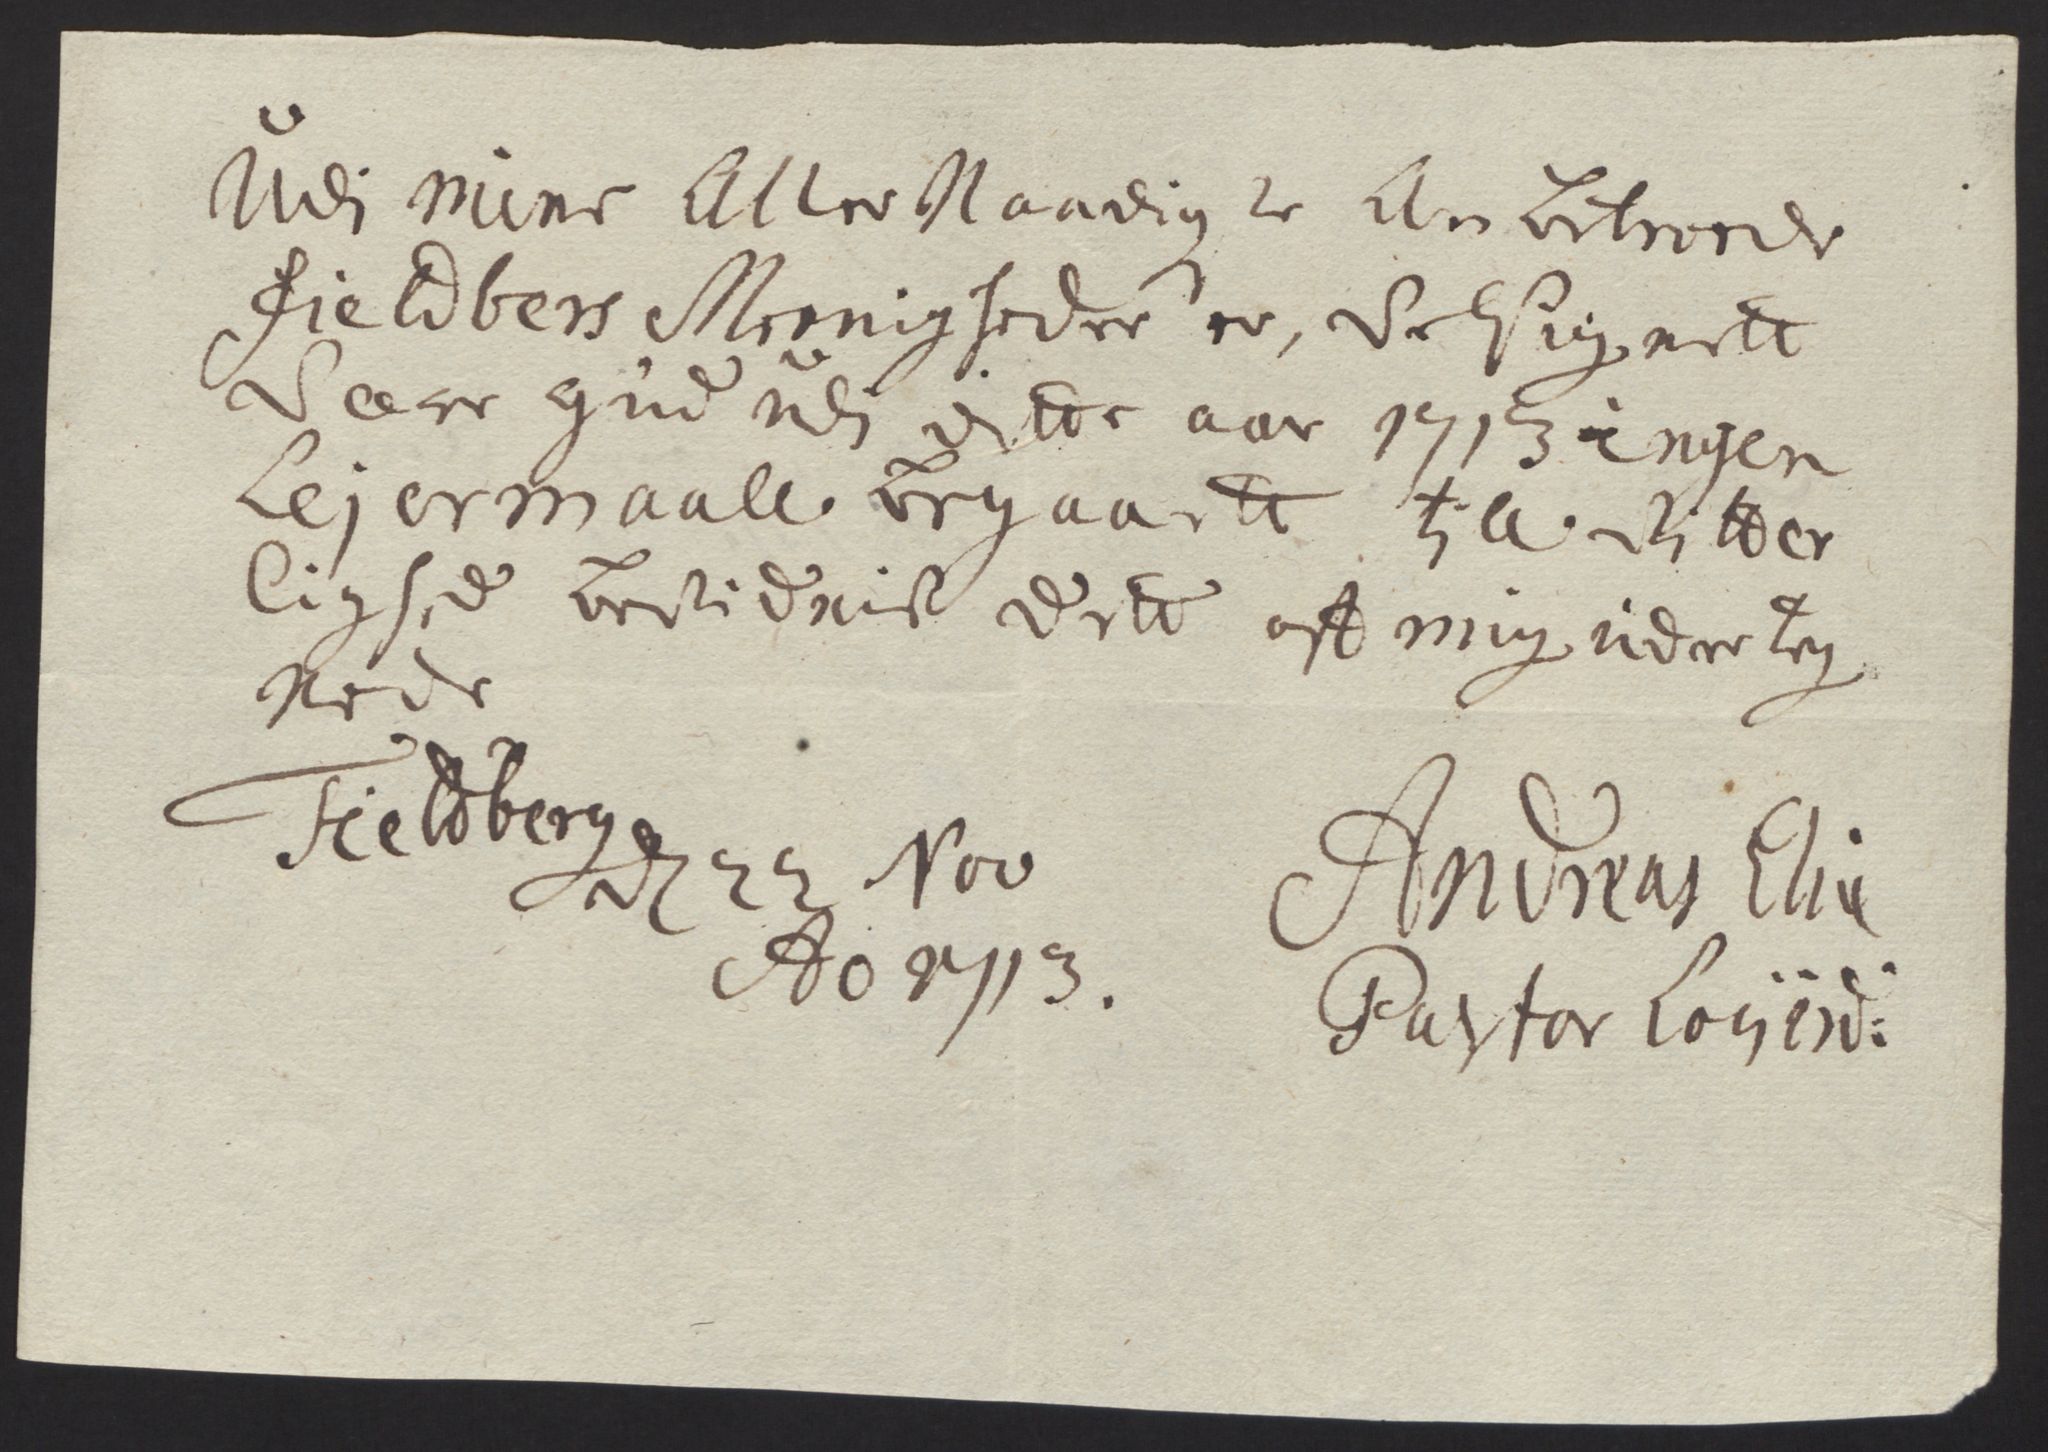 Udi mine Aller Naadigste Anbetroede
Fieldbers Menigheder er, Velsignett
Være gud udi dette aar 1713 ingen
Lejermaall begaaett till Vitter
lighed bestidnis dett aff mig underteg
nede
Fieldberg d 22 Nov
Ao 1713.
Andreas Eliæ
Pastor Loci